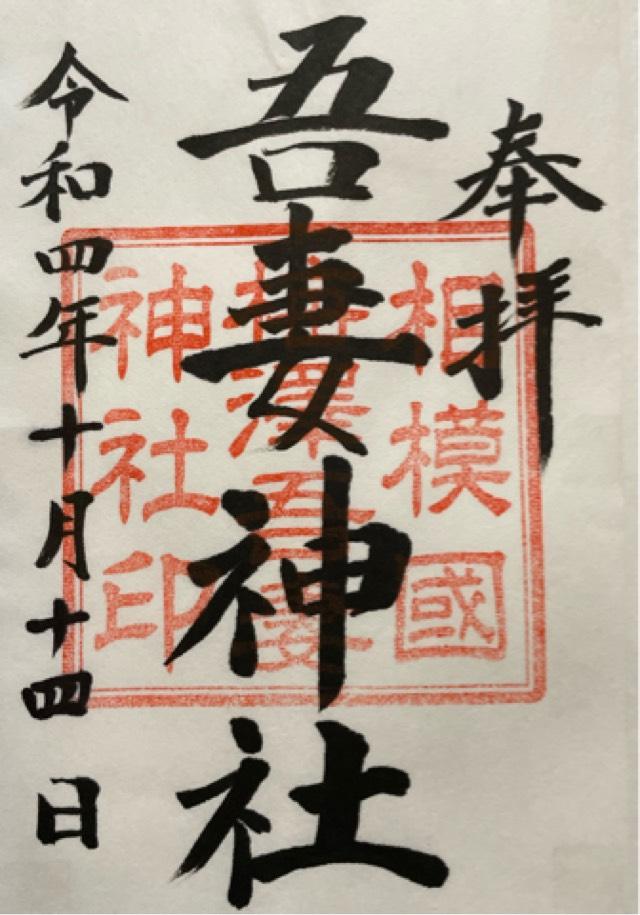 奉拝
吾妻神社
令和四年十月十四日
相模國
梅澤吾妻
神社印